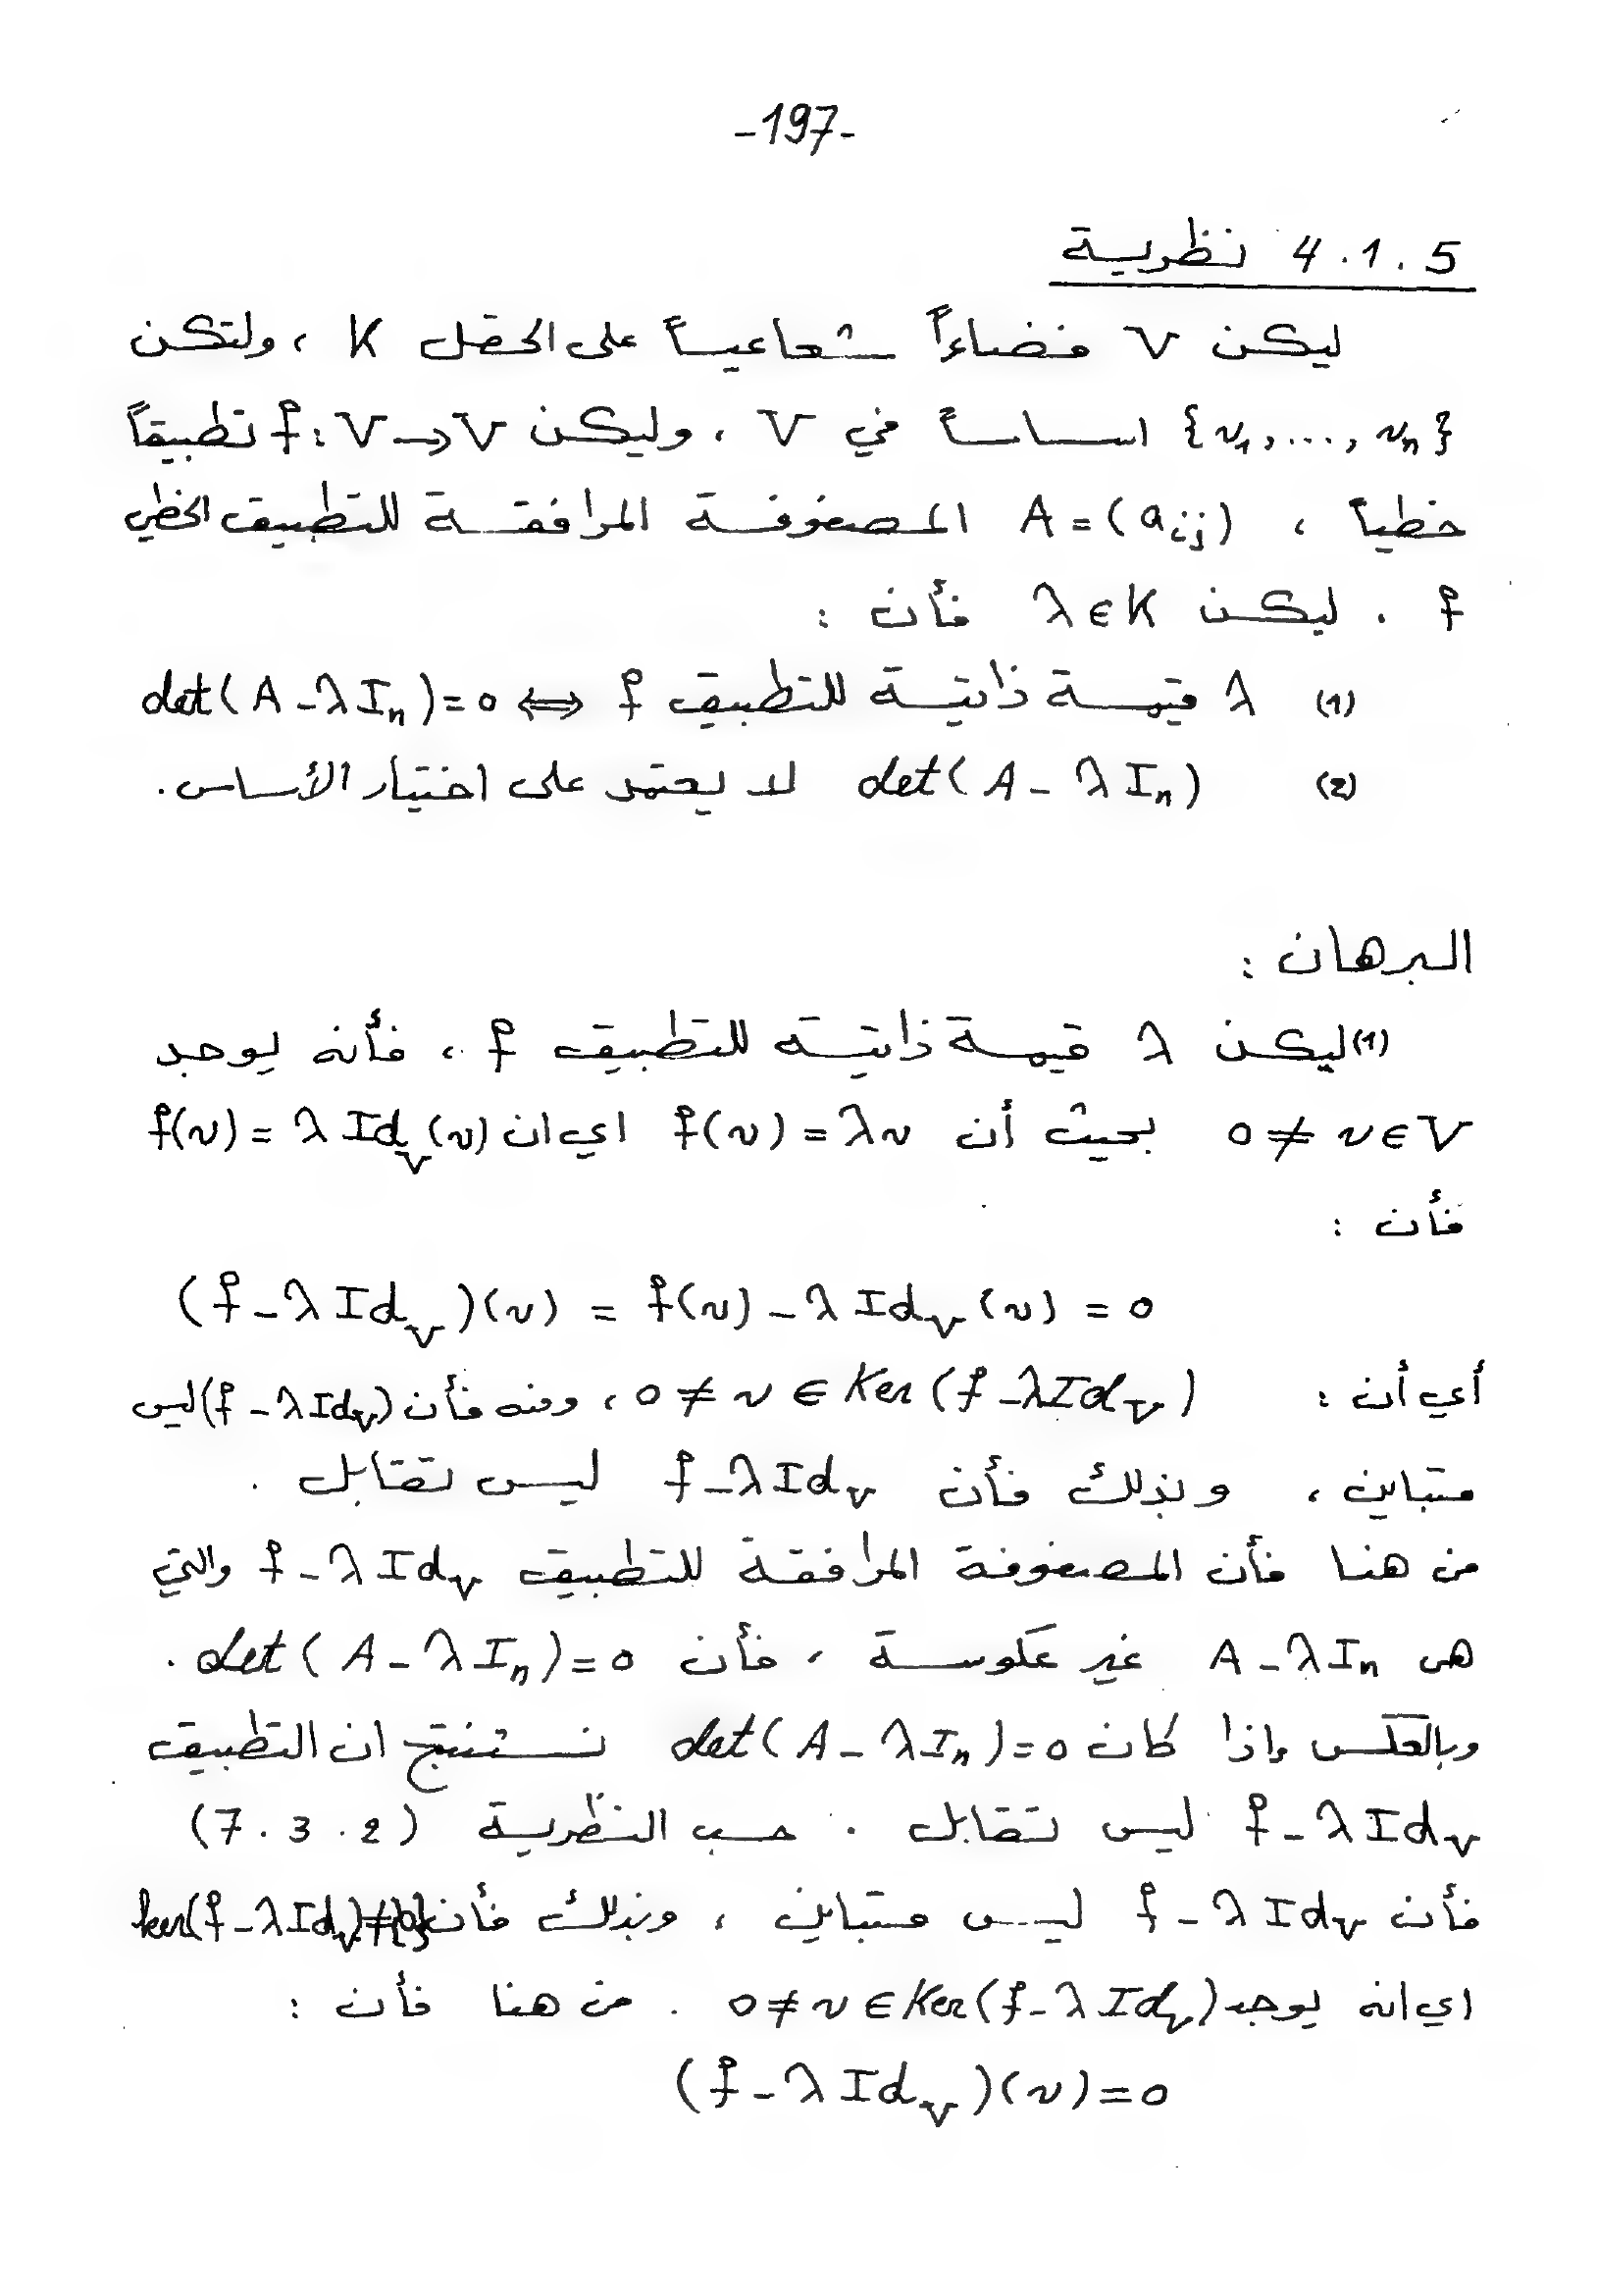 -197-
4.1.5 نظرية
ليكن V فضاءاً شعاعياً على الحقل K ، ولتكن
{v₁,...,vₙ} اساساً في V ، وليكن f:V→V تطبيقاً
خطياً ، A=(aᵢⱼ) المصفوفة المرافقة للتطبيق الخطي
f . ليكن λ∈K فأن :
(1) λ قيمة ذاتية للتطبيق f ⇔ det(A-λIₙ)=0
(2) det(A-λIₙ) لا يعتمد على اختيار الأساس .
البرهان :
(1) ليكن λ قيمة ذاتية للتطبيق f ، فأنه يوجد
0≠v∈V بحيث أن f(v)=λv اي ان f(v)=λId_V(v)
فأن :
(f-λId_V)(v) = f(v)-λId_V(v) = 0
أي أن : 0≠v∈Ker(f-λId_V) ، ومنه فأن (f-λId_V) ليس
متباين ، وبذلك فأن f-λId_V ليس تقابل .
من هنا فأن المصفوفة المرافقة للتطبيق f-λId_V والتي
هي A-λIₙ غير عكوسة ، فأن det(A-λIₙ)=0 .
وبالعكس واذا كان det(A-λIₙ)=0 نستنتج ان التطبيق
f-λId_V ليس تقابل . حسب النظرية (7.3.2)
فأن f-λId_V ليس متباين ، وبذلك فأن ker(f-λId_V)≠{0}
اي انه يوجد 0≠v∈Ker(f-λId_V) . من هنا فأن :
(f-λId_V)(v)=0